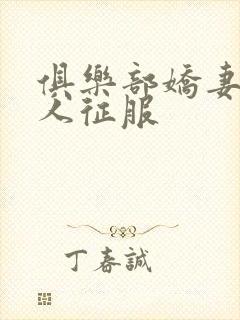 俱樂部嬌妻
人征服
丁春誠